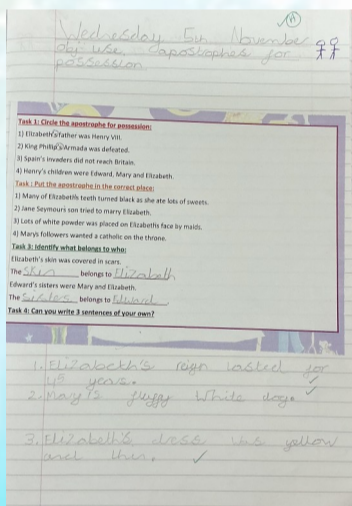 Wednesday 5th November
obj: use apostrophes for
possession.
Task 1: Circle the apostrophe for possession:
1) Elizabeth's father was Henry VIII.
2) King Phillip's Armada was defeated.
3) Spain's invaders did not reach Britain.
4) Henry's children were Edward, Mary and Elizabeth.
Task : Put the apostrophe in the correct place:
1) Many of Elizabeths teeth turned black as she ate lots of sweets.
2) Jane Seymours son tried to marry Elizabeth.
3) Lots of white powder was placed on Elizabeths face by maids.
4) Marys followers wanted a catholic on the throne.
Task 3: Identify what belongs to who:
Elizabeth's skin was covered in scars.
The Skin belongs to Elizabeth
Edward's sisters were Mary and Elizabeth.
The Sisters belongs to Edward.
Task 4: Can you write 3 sentences of your own?
1. Elizabeth's reign lasted for
45 years.
2. Mary's fluffy White dog.
3. Elizabeth's dress was yellow
and